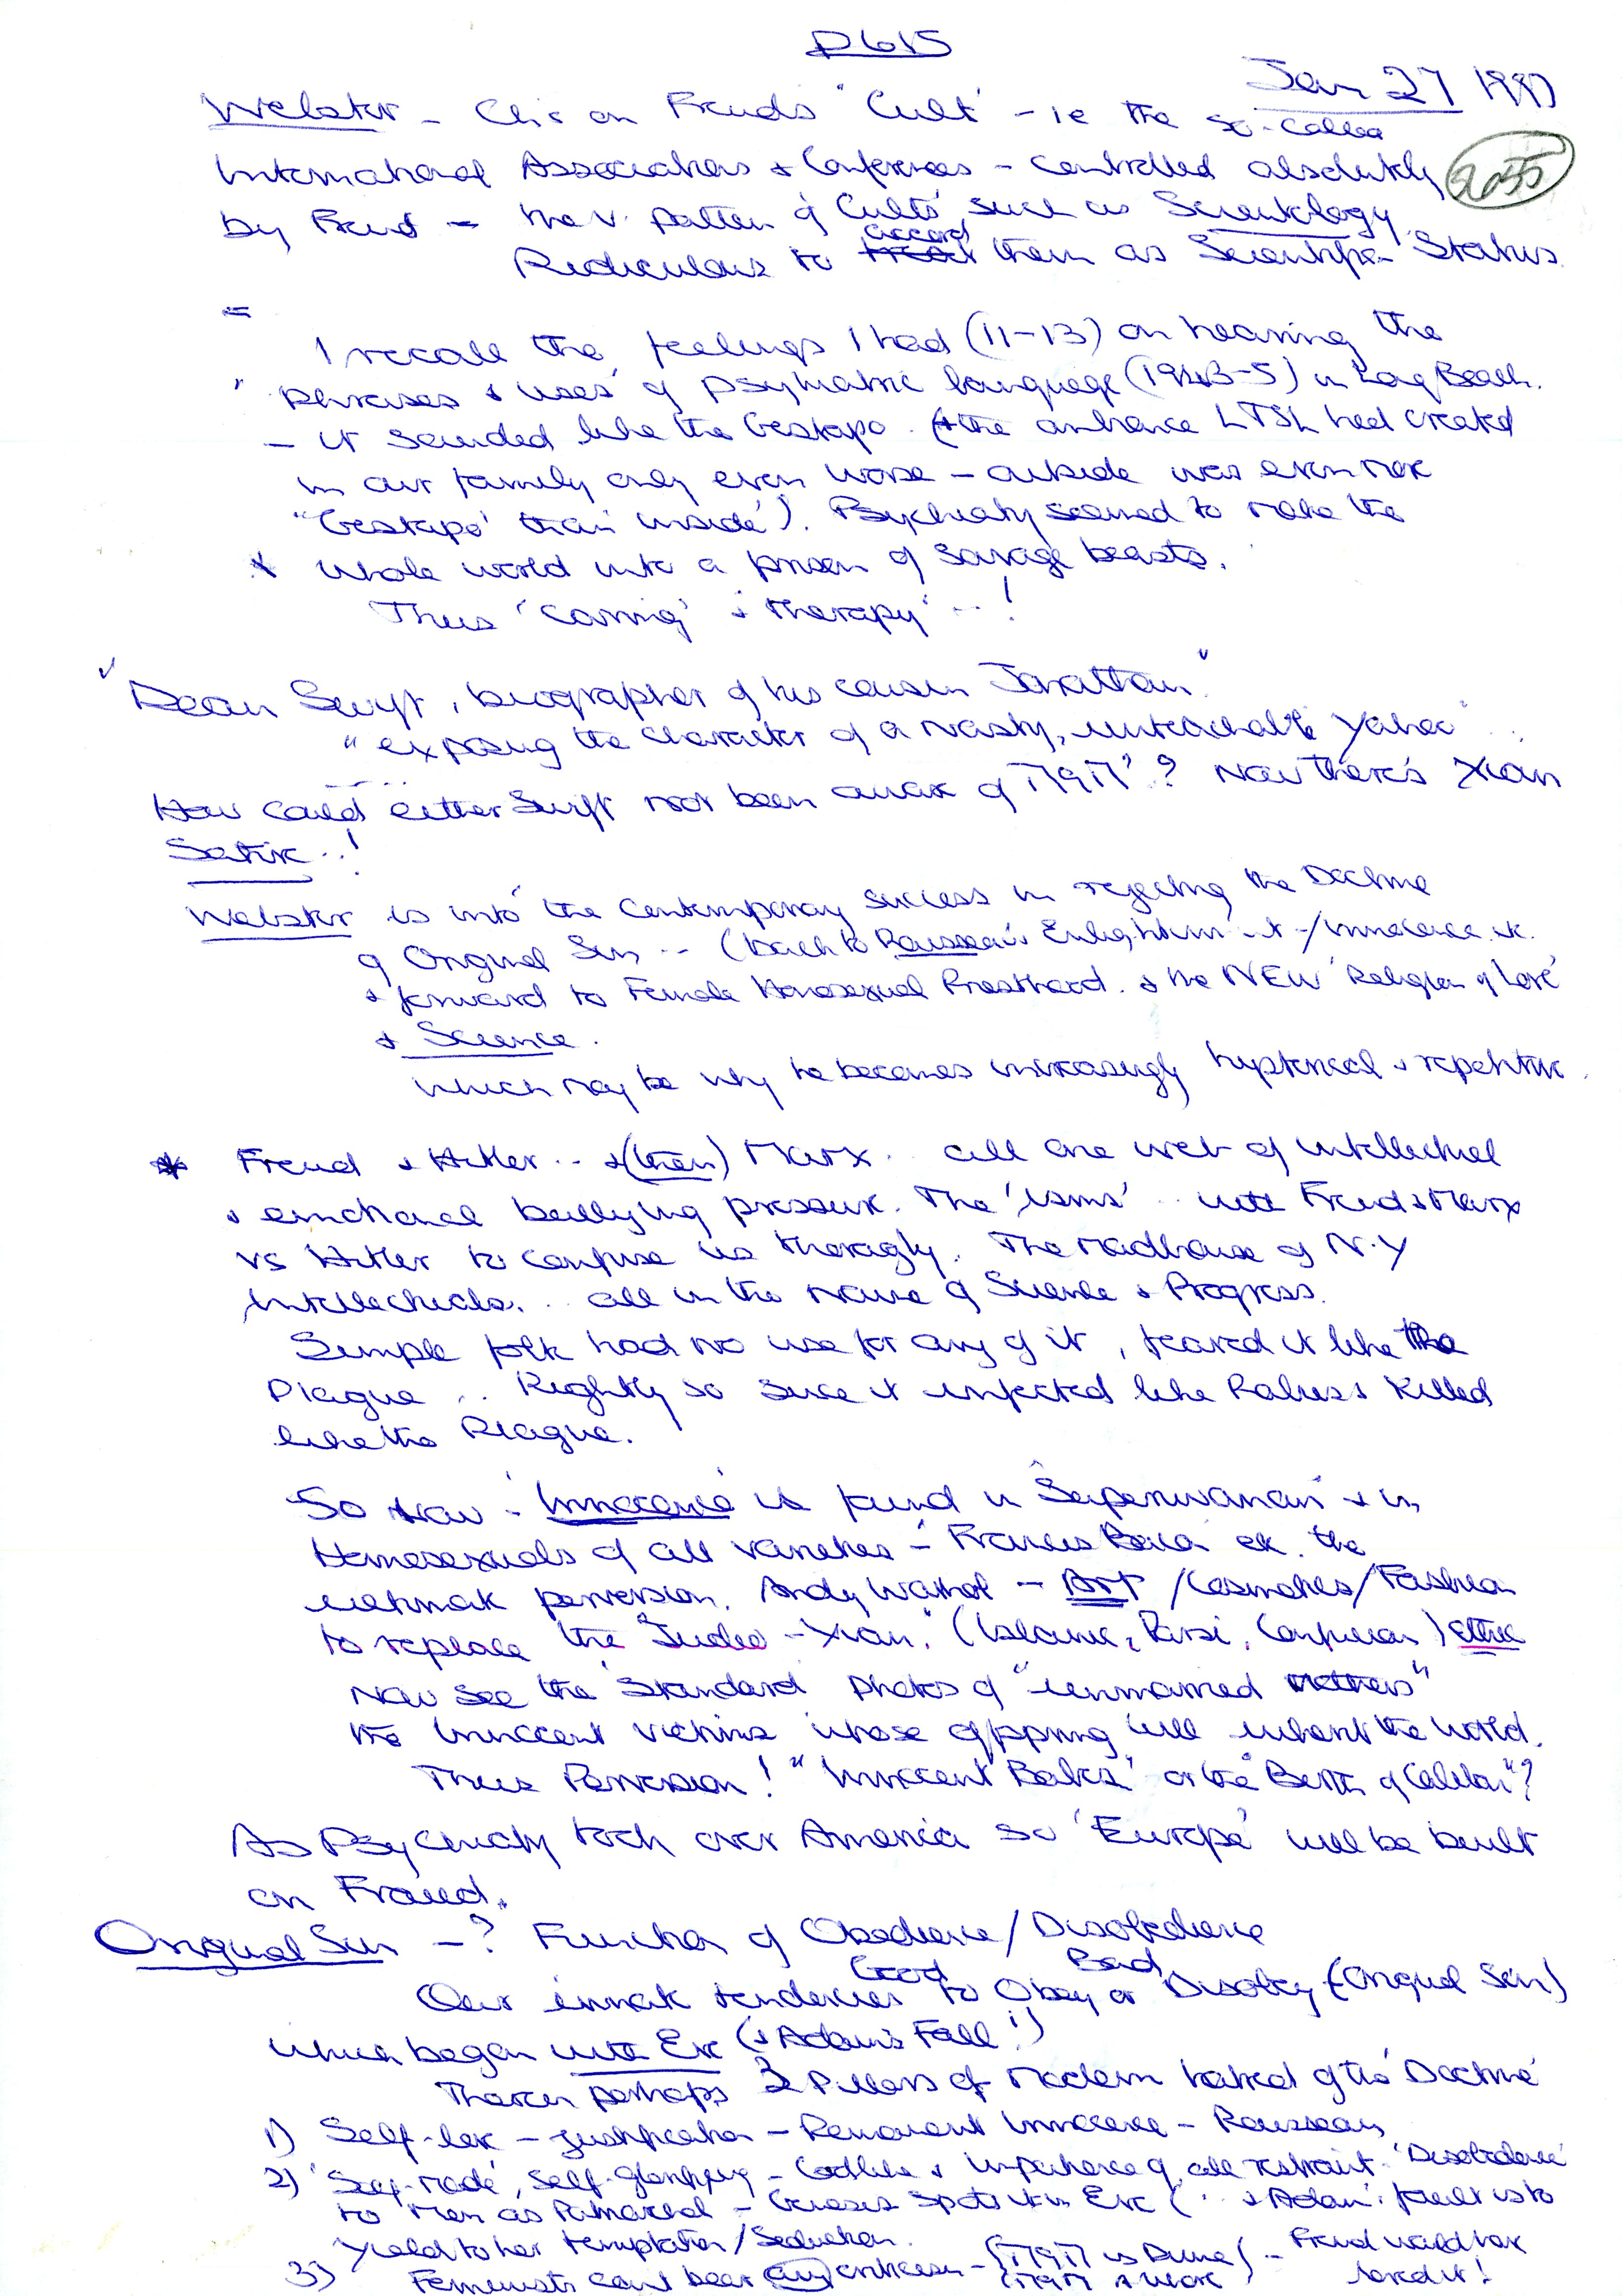 P615
Jan 27 1997
Webster - Chs on Freuds 'Cult' - ie the so-called
International Associations & Conferences - controlled absolutely
2055
by Freud - the v. pattern of 'Cults' such as Scientology
Ridiculous to accord them as Scientific Status.
I recall the feelings I had (11-13) on hearing the
phrases & 'uses' of psychiatric language (1943-5) in Long Beach.
- it sounded like the Gestapo. (the ambiance had created
in our family only even worse - outside was even more
"Gestapo' than 'inside'). Psychiatry seemed to make the
* whole world into a prison of savage beasts.
Thus 'Caring' & 'therapy' ..!
"Dean Swift, biographer of his cousin Jonathan"
"exposing the character of a nasty, unteachable Yahoo"
How could either Swift not been aware of ? Now there's Xian
Satire..!
Webster is into the contemporary success in rejecting the Doctrine
of Original Sin .. (back to Rousseau's Enlightenment / Innocence etc.
& forward to Female Homosexual Priesthood. & the NEW 'Religion of Love'
& Science.
which may be why he becomes increasingly hysterical & repetitive.
* Freud & Hitler .. & (then) Marx. all one web of intellectual
& emotional bullying pressure. The 'isms' .. with Freud & Marx
vs Hitler to confuse us thoroughly. The Madhouse of N.Y
Intellectuals... all in the name of Science & Progress.
Simple folk had no use for any of it, feared it like the
Plague .. Rightly so since it infected like Rabies & killed
like the Plague.
So now - 'Innocence' is found in Superwoman & in
Homosexuals of all varieties - Francis Bacon etc. the
ultimate perversion. Andy Warhol - Art / Cosmetics / Fashion
to replace the "Judeo-Xian." (Islamic, Parsi, Confucian) ethic
Now see the 'Standard' photos of "unmarried mothers"
the innocent victims whose offspring will inherit the world.
Thus Perversion! "Innocent Babes' or the "Birth of Caliban"?
As Psychiatry took over America so 'Europe' will be built
on Fraud.
Original Sin - ? Function of Obedience / Disobedience
Our innate tendencies to Obey Good or Disobey Bad (Original Sin)
which began with Eve (& Adam's Fall!)
There are perhaps 3 Pillars of modern hatred of the 'Doctrine'
1) Self-love - justification - Innocence - Rousseau
2) 'Self-made', self-glorifying - Godlike & impatience of all restraint. 'Disobedience'
to Men as Patriarchal - Genesis spots it in Eve ( & Adam' fault is to
yield to her temptation / Seduction.
3) Feminists can't bear any criticism - - Freud would have
loved it!